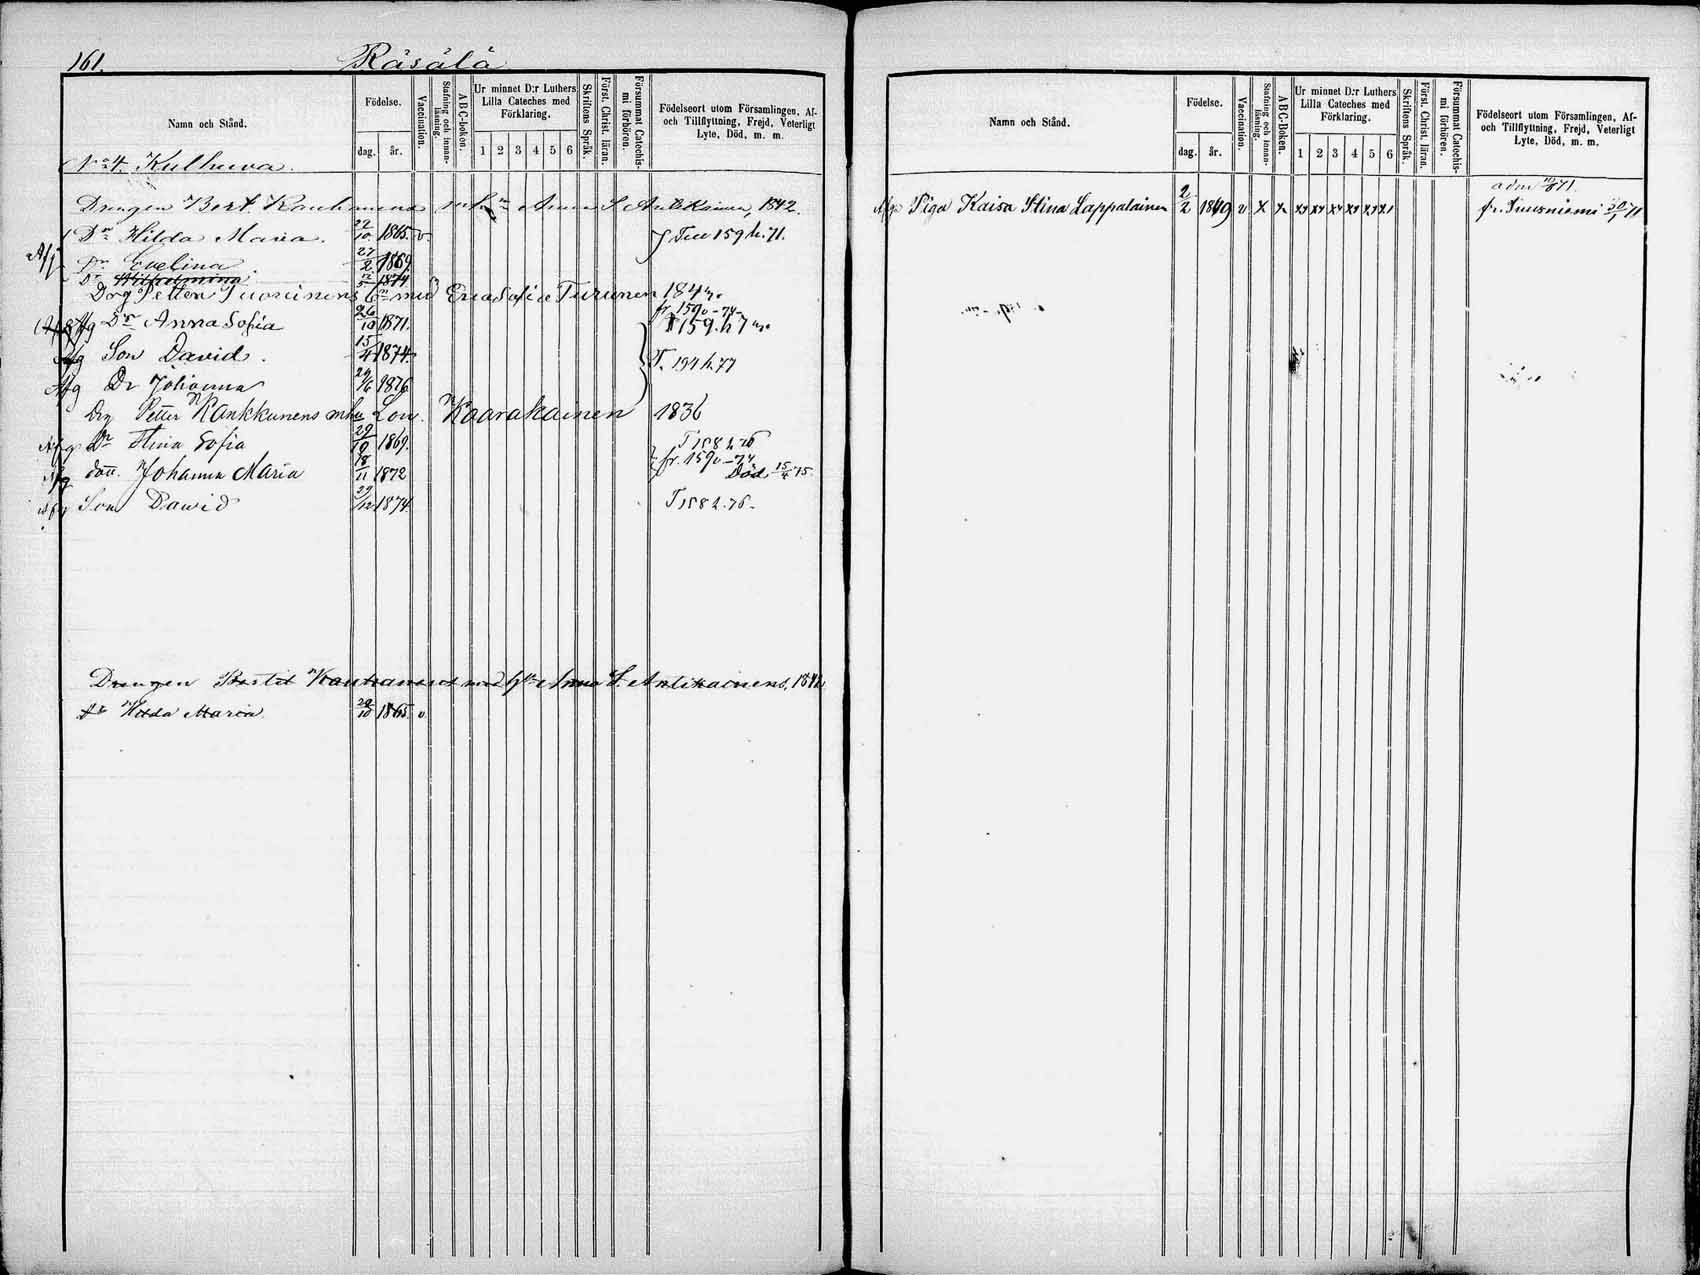 161. Räsälä
Namn och Stånd.
Födelse.
dag. år.
Vaccination.
Stafning och innan-läsning.
A B C-boken.
Ur minnet D:r Luthers Lilla Cateches med Förklaring.
1 2 3 4 5 6
Skriftens Språk.
Först. Christ. läran.
Försummat Catechis-mi förhören.
Födelseort utom Församlingen, Af- och Tillflyttning, Frejd, Veterligt Lyte, Död, m. m.
No 4. Kulhuva.
Drengen Bert. Kauhanens Anna S. Antikainen, 1842.
Dr Hilda Maria. 22/10 1865. v. Till 159 h. 71.
Afg Dr Evelina 27/2 1869.
Dr Wilhelmina 1874
Drg Petter Tuovinens med Erica Sofia Turunen 1844.
Afg Dr Anna Sofia 26/10 1871. fr. 159 v-74. 159. h 7
Afg Son David. 15/4 1874. T. 194 h. 77
Afg Dr Johanna 29/6 1876
Drg Petter Kankkunens Lov. Kaarakainen 1836
Afg Dr Stina Sofia 29/9 1869. T 158 2. 76
Afg dott. Johanna Maria 18/11 1872 fr. 159 v-74 Död 15/4 75.
Afg Son Dawid 29/12 1874. T 158 2. 76.
Drengen Bertel Kauhanens med Anna S. Antikainens. 1842
Dr Hilda Maria. 22/10 1865. v
Namn och Stånd.
Födelse.
dag. år.
Vaccination.
Stafning och innan-läsning.
A B C-Boken.
Ur minnet D:r Luthers Lilla Cateches med Förklaring.
1 2 3 4 5 6
Skriftens Språk.
Först. Christ. läran.
Försummat Catechis-mi förhören.
Födelseort utom Församlingen, Af- och Tillflyttning, Frejd, Veterligt Lyte, Död, m. m.
Afg. Piga Kaisa Stina Lappalainen 2/2 1849 v x x
fr. Tuusniemi 71